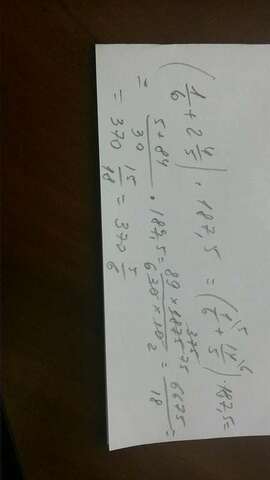 ( 1/6 + 2 4/5 ) · 187,5 = ( 1/6 ⁵ + 14/5 ⁶ ) · 187,5 =
= 5+84/30 · 187,5 = 89 × 1875 375 75 / 6 30 × 10 2 = 6675/18 =
= 370 15/18 = 370 5/6